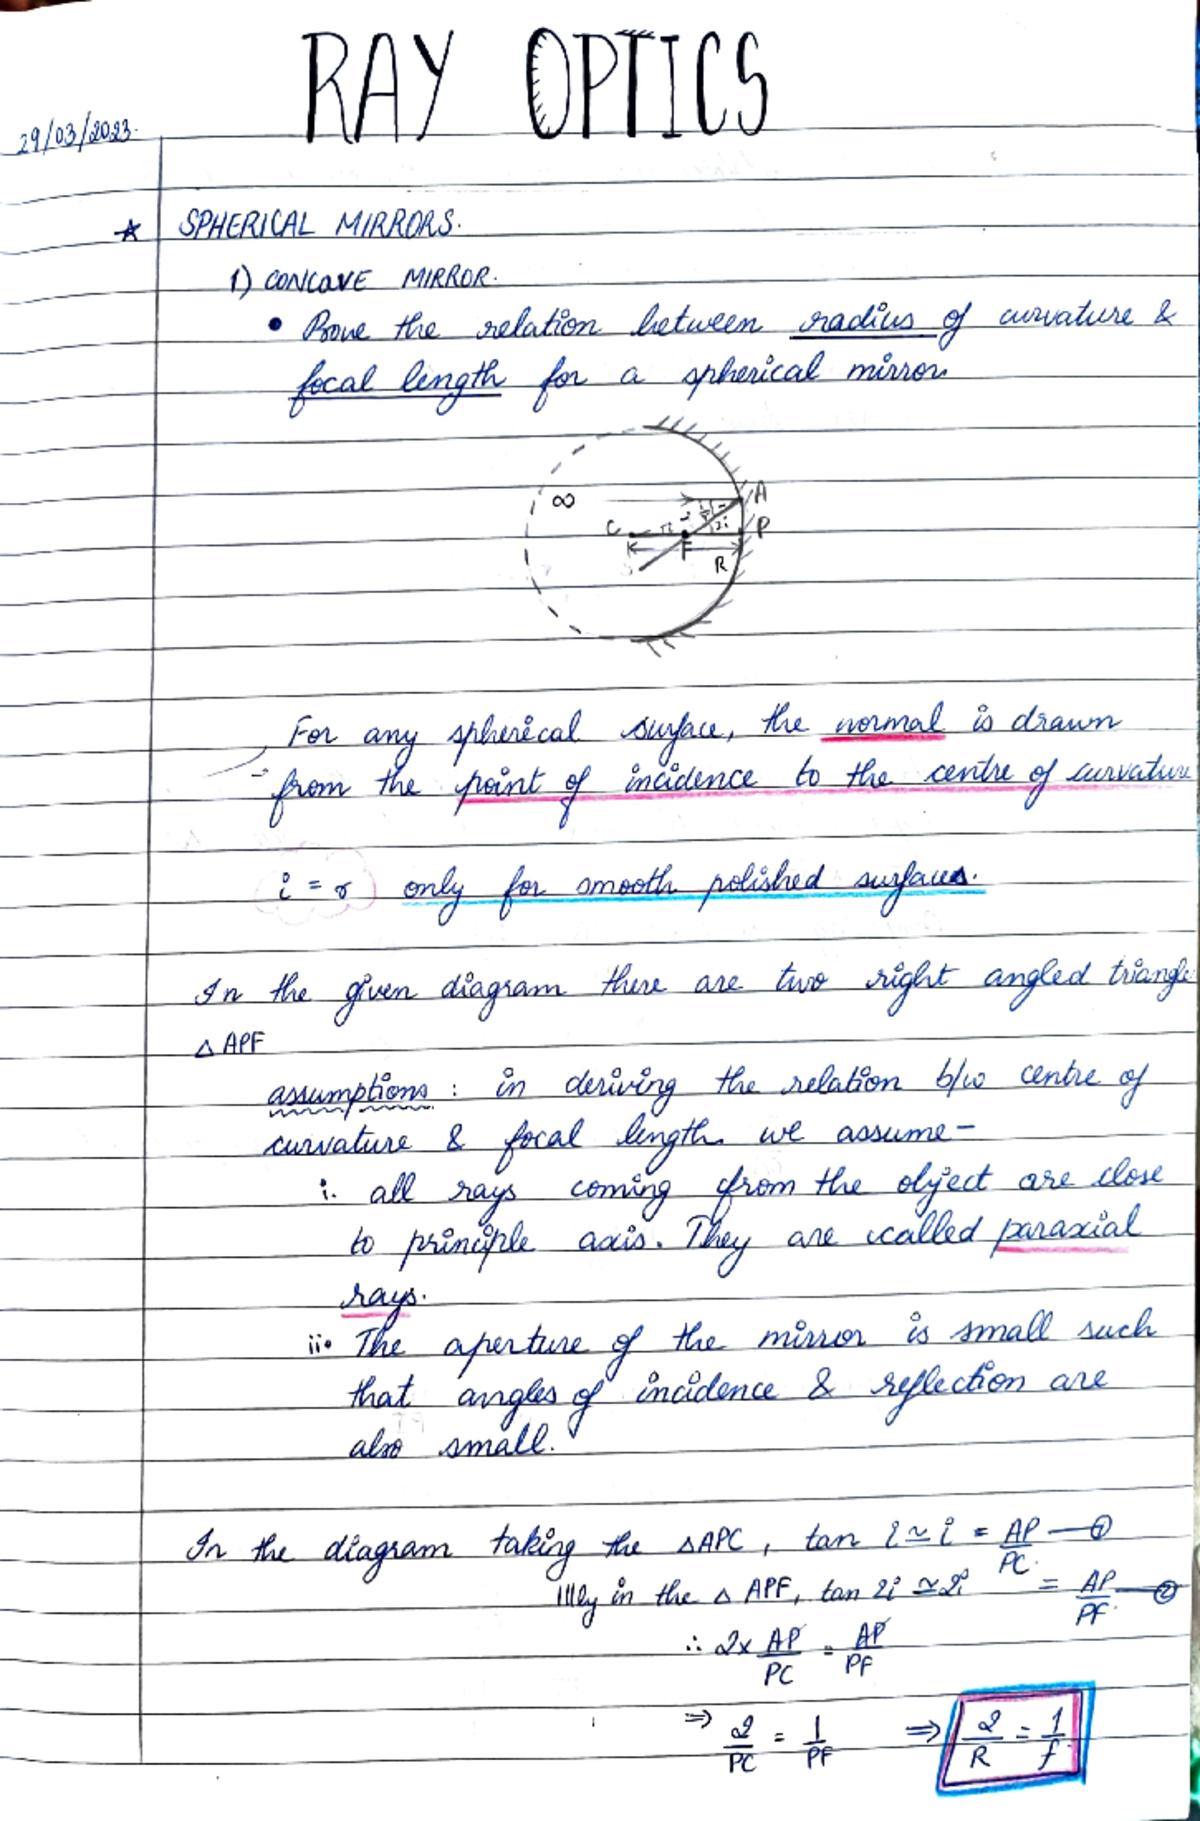 RAY OPTICS
29/03/2023.
☆ SPHERICAL MIRRORS.
1) CONCAVE MIRROR.
• Prove the relation between radius of curvature &
focal length for a spherical mirror
∞
A
C
2i
P
F
R
For any spherical surface, the normal is drawn
from the point of incidence to the centre of curvature
i = r only for smooth polished surfaces.
In the given diagram there are two right angled triangle
△ APF
assumptions : in deriving the relation b/w centre of
curvature & focal length we assume -
i. all rays coming from the object are close
to principle axis. They are called paraxial
rays.
ii. The aperture of the mirror is small such
that angles of incidence & reflection are
also small.
In the diagram taking the △APC, tan i ≃ i = AP/PC. — ①
lllly in the △ APF, tan 2i ≃ 2i = AP/PF. — ②
∴ 2 x AP/PC = AP/PF
⇒ 2/PC = 1/PF ⇒ 2/R = 1/f